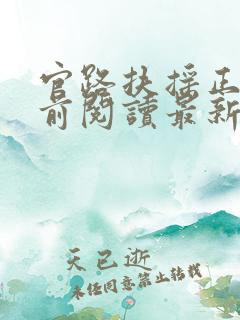 官路扶摇正
前阅讀最新
天已逝
未经同意禁止转载